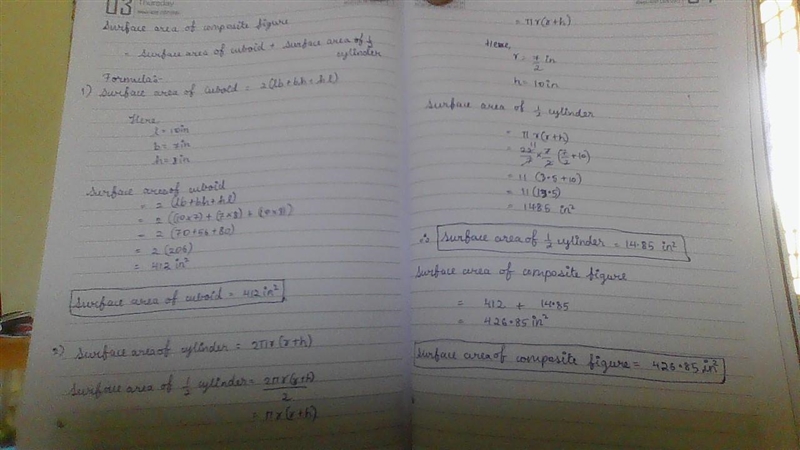 03 Thursday
Surface area of composite figure
= Surface area of cuboid + Surface area of 1/2 cylinder
Formula:-
1) Surface area of cuboid = 2(lb+bh+hl)
Here,
l = 10in
b = 7in
h = 8in
Surface area of cuboid
= 2 (lb+bh+hl)
= 2 ((10×7)+(7×8)+(10×8))
= 2 (70+56+80)
= 2 (206)
= 412 in²
Surface area of cuboid = 412 in²
2) Surface area of cylinder = 2πr(r+h)
Surface area of 1/2 cylinder = 2πr(r+h)/2
= πr(r+h)
= πr(r+h)
Here,
r = 7/2 in
h = 10in
Surface area of 1/2 cylinder
= πr(r+h)
= 22/7 × 7/2 (7/2+10)
= 11 (3.5+10)
= 11 (13.5)
= 1485 in²
∴ Surface area of 1/2 cylinder = 14.85 in²
Surface area of composite figure
= 412 + 14.85
= 426.85 in²
Surface area of composite figure = 426.85 in²